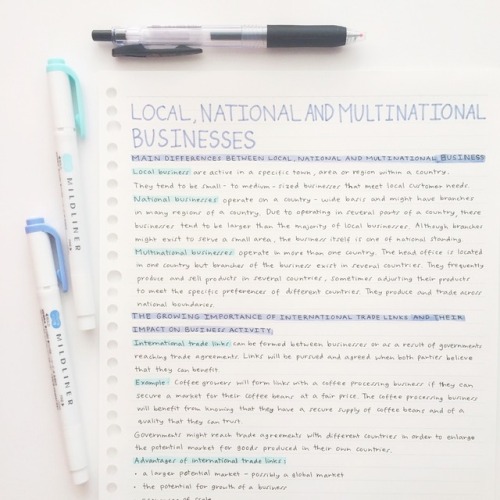 LOCAL, NATIONAL AND MULTINATIONAL
BUSINESSES
MAIN DIFFERENCES BETWEEN LOCAL, NATIONAL AND MULTINATIONAL BUSINESS
Local business are active in a specific town, area or region within a country.
They tend to be small- to medium-sized businesses that meet local customer needs.
National businesses operate on a country-wide basis and might have branches
in many regions of a country. Due to operating in several parts of a country, these
businesses tend to be larger than the majority of local businesses. Although branches
might exist to serve a small area, the business itself is one of national standing.
Multinational businesses operate in more than one country. The head office is located
in one country but branches of the business exist in several countries. They frequently
produce and sell products in several countries, sometimes adjusting their products
to meet the specific preferences of different countries. They produce and trade across
national boundaries.
THE GROWING IMPORTANCE OF INTERNATIONAL TRADE LINKS AND THEIR
IMPACT ON BUSINESS ACTIVITY.
International trade links can be formed between businesses or as a result of governments
reaching trade agreements. Links will be pursued and agreed when both parties believe
that they can benefit.
Example: Coffee growers will form links with a coffee processing business if they can
secure a market for their coffee beans at a fair price. The coffee processing business
will benefit from knowing that they have a secure supply of coffee beans and of a
quality that they can trust.
Governments might reach trade agreements with different countries in order to enlarge
the potential market for goods produced in their own countries.
Advantages of international trade links:
• a larger potential market - possibly a global market
• the potential for growth of a business
MILDLINER
MILDLINER